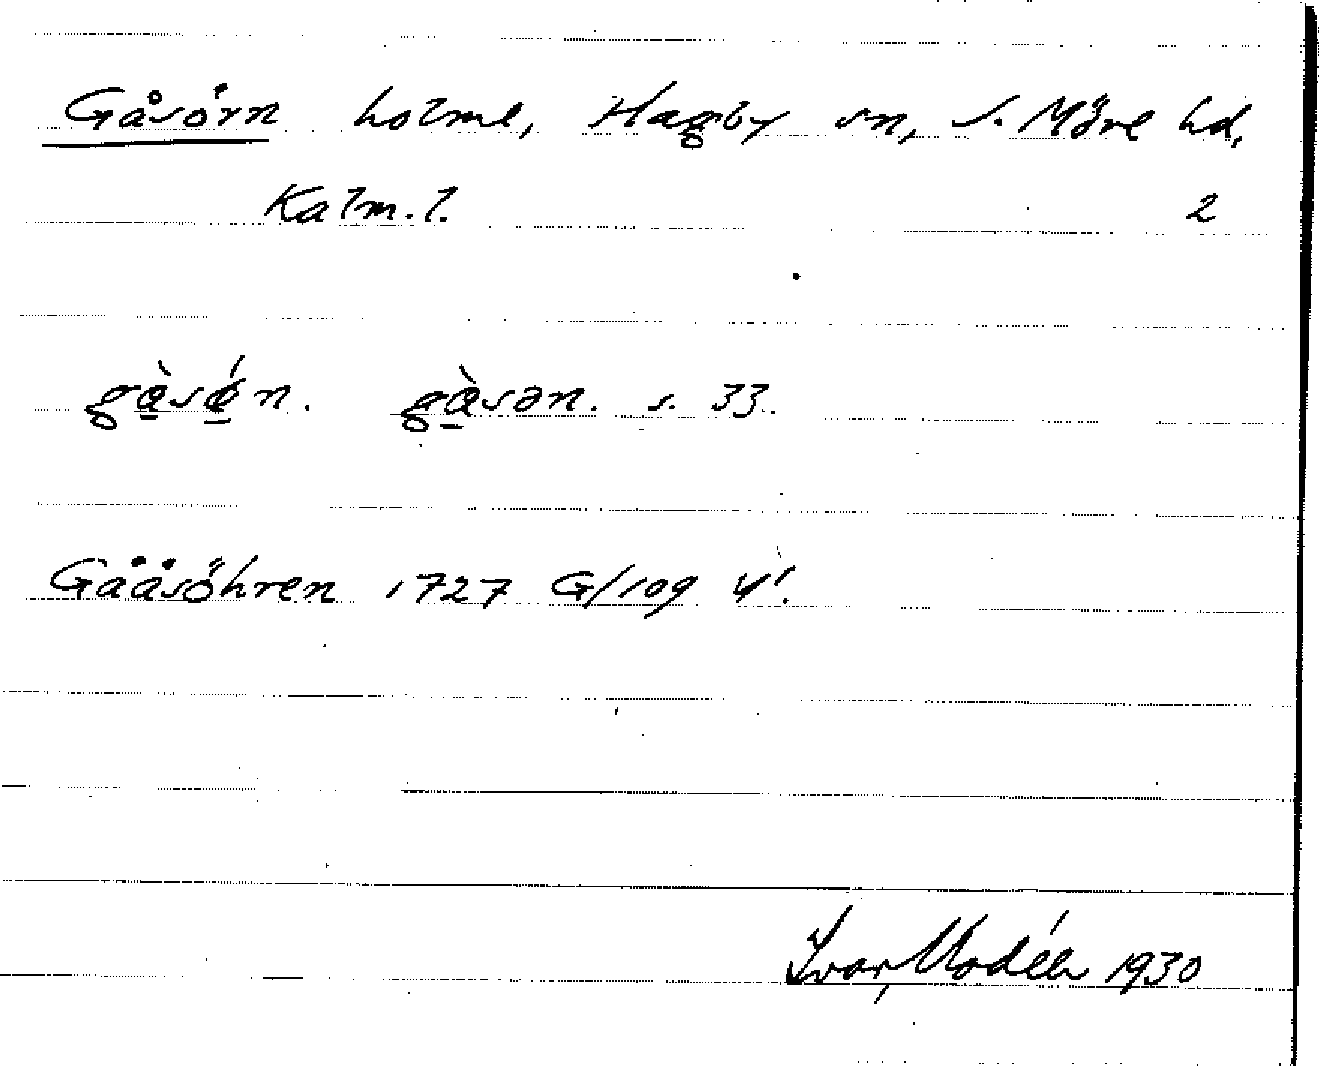 Gåsörn holme, Hagby sn, S. Möre hd,
Kalm. l. 2
gàsǿn. gàsən. s. 33.
Gååsöhren 1727 G/109 4¹.
Ivar Modéer 1930